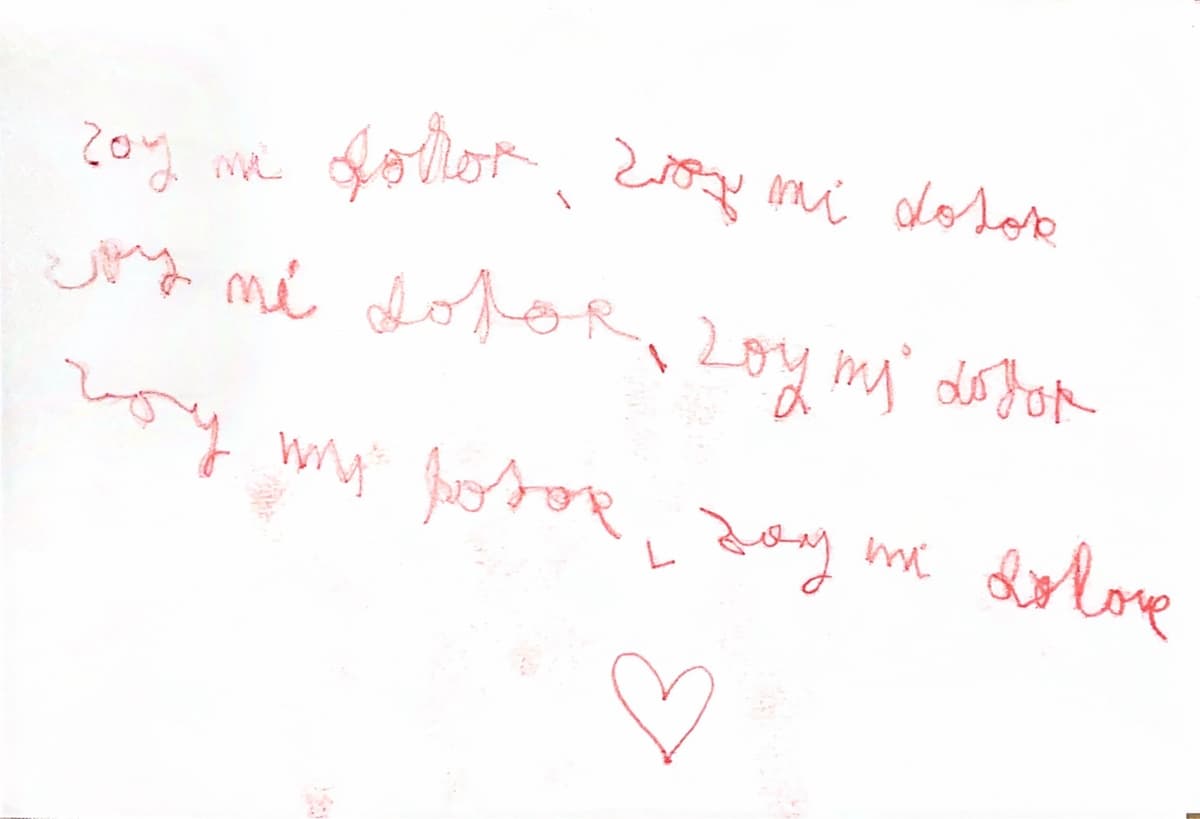 zoy mi dotor, zoy mi dotor
zoy mi dotor, zoy mi dotor
zoy mi dotor, zoy mi dotor